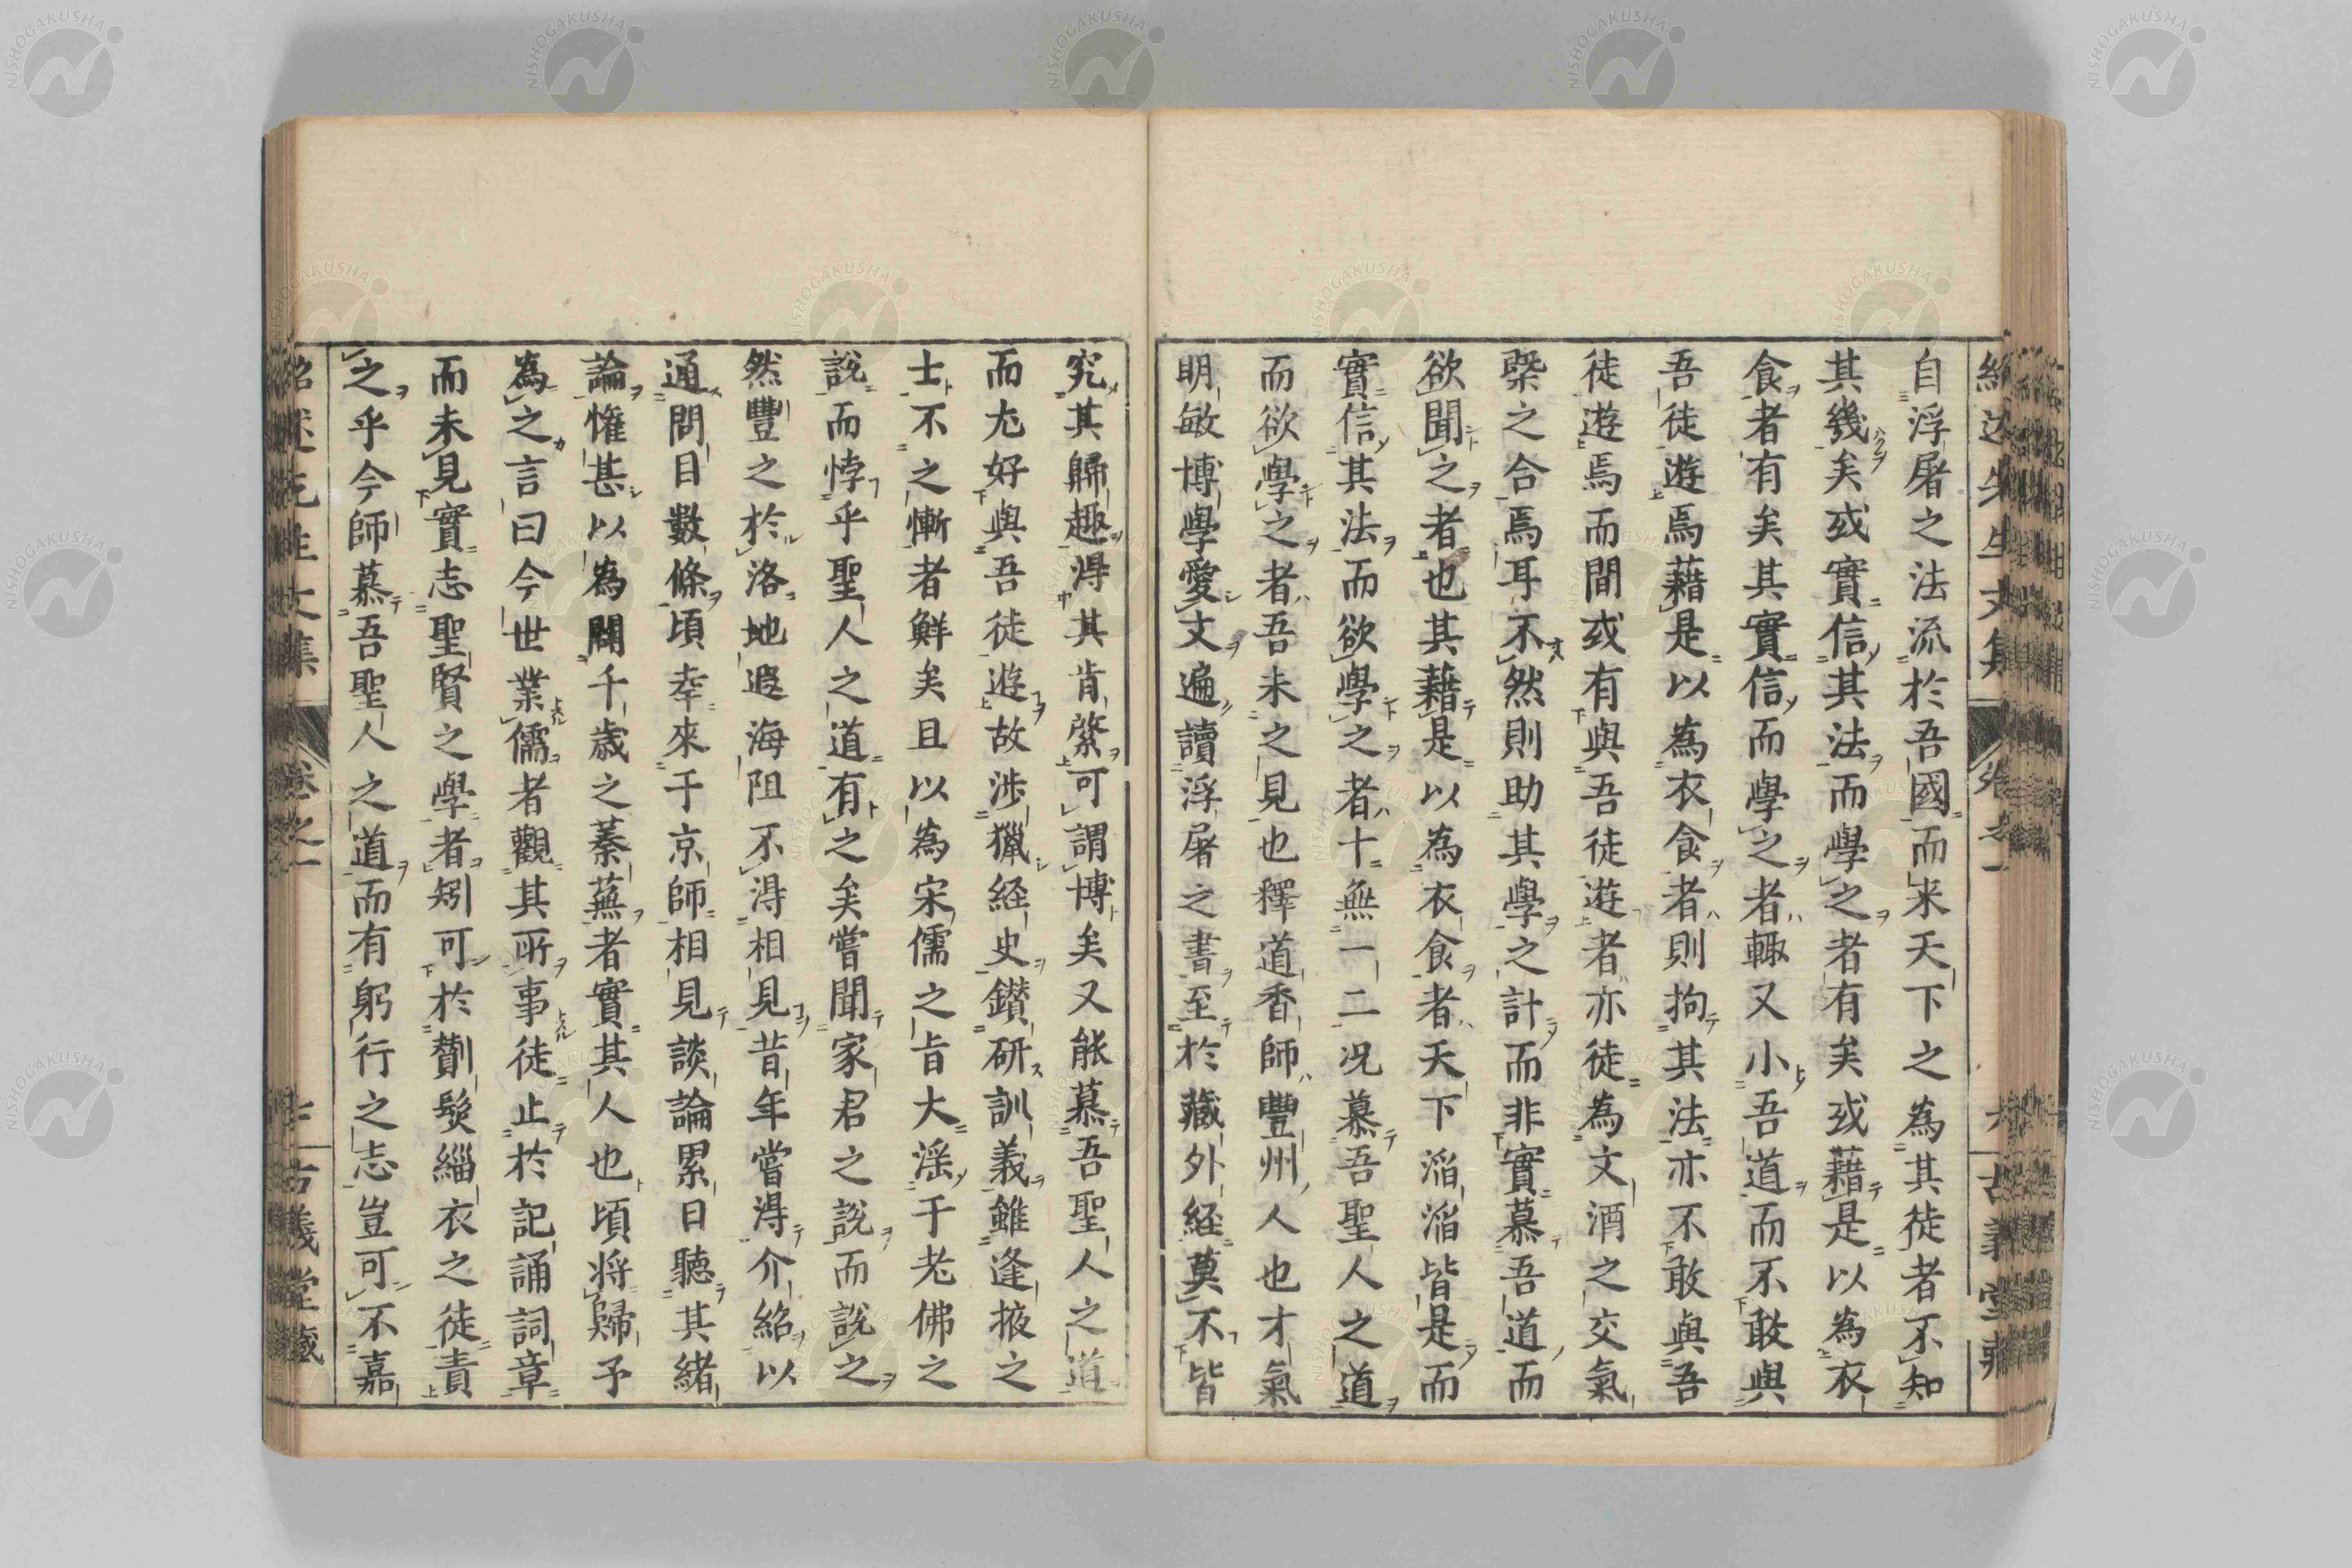 紹述先生文集 卷之一 六 古義堂藏
自浮屠之法流於吾國而来天下之為其徒者不知
其幾矣或實信其法而學之者有矣或藉是以為衣
食者有矣其實信而學之者輙又小吾道而不敢與
吾徒遊焉藉是以為衣食者則拘其法亦不敢與吾
徒遊焉而間或有與吾徒遊者亦徒為文酒之交氣
槩之合焉耳不然則助其學之計而非實慕吾道而
欲聞之者也其藉是以為衣食者天下滔滔皆是而
實信其法而欲學之者十無一二况慕吾聖人之道
而欲學之者吾未之見也釋道香師豐州人也才氣
明敏博學愛文遍讀浮屠之書至於藏外経莫不皆
究其歸趣得其肯綮可謂博矣又能慕吾聖人之道
而尤好與吾徒遊故涉獵経史鑚研訓義雖逢掖之
士不之慚者鮮矣且以為宋儒之旨大滛于老佛之
說而悖乎聖人之道有之矣嘗聞家君之說而說之
然豐之於洛地遐海阻不得相見昔年嘗得介紹以
通問目數條頃幸來于京師相見談論累日聽其緒
論懽甚以為闢千歳之蓁蕪者實其人也頃将歸予
為之言曰今世業儒者觀其所事徒止於記誦詞章
而未見實志聖賢之學者矧可於剺髮緇衣之徒責
之乎今師慕吾聖人之道而有躬行之志豈可不嘉
紹述先生文集 卷之一 七 古義堂藏